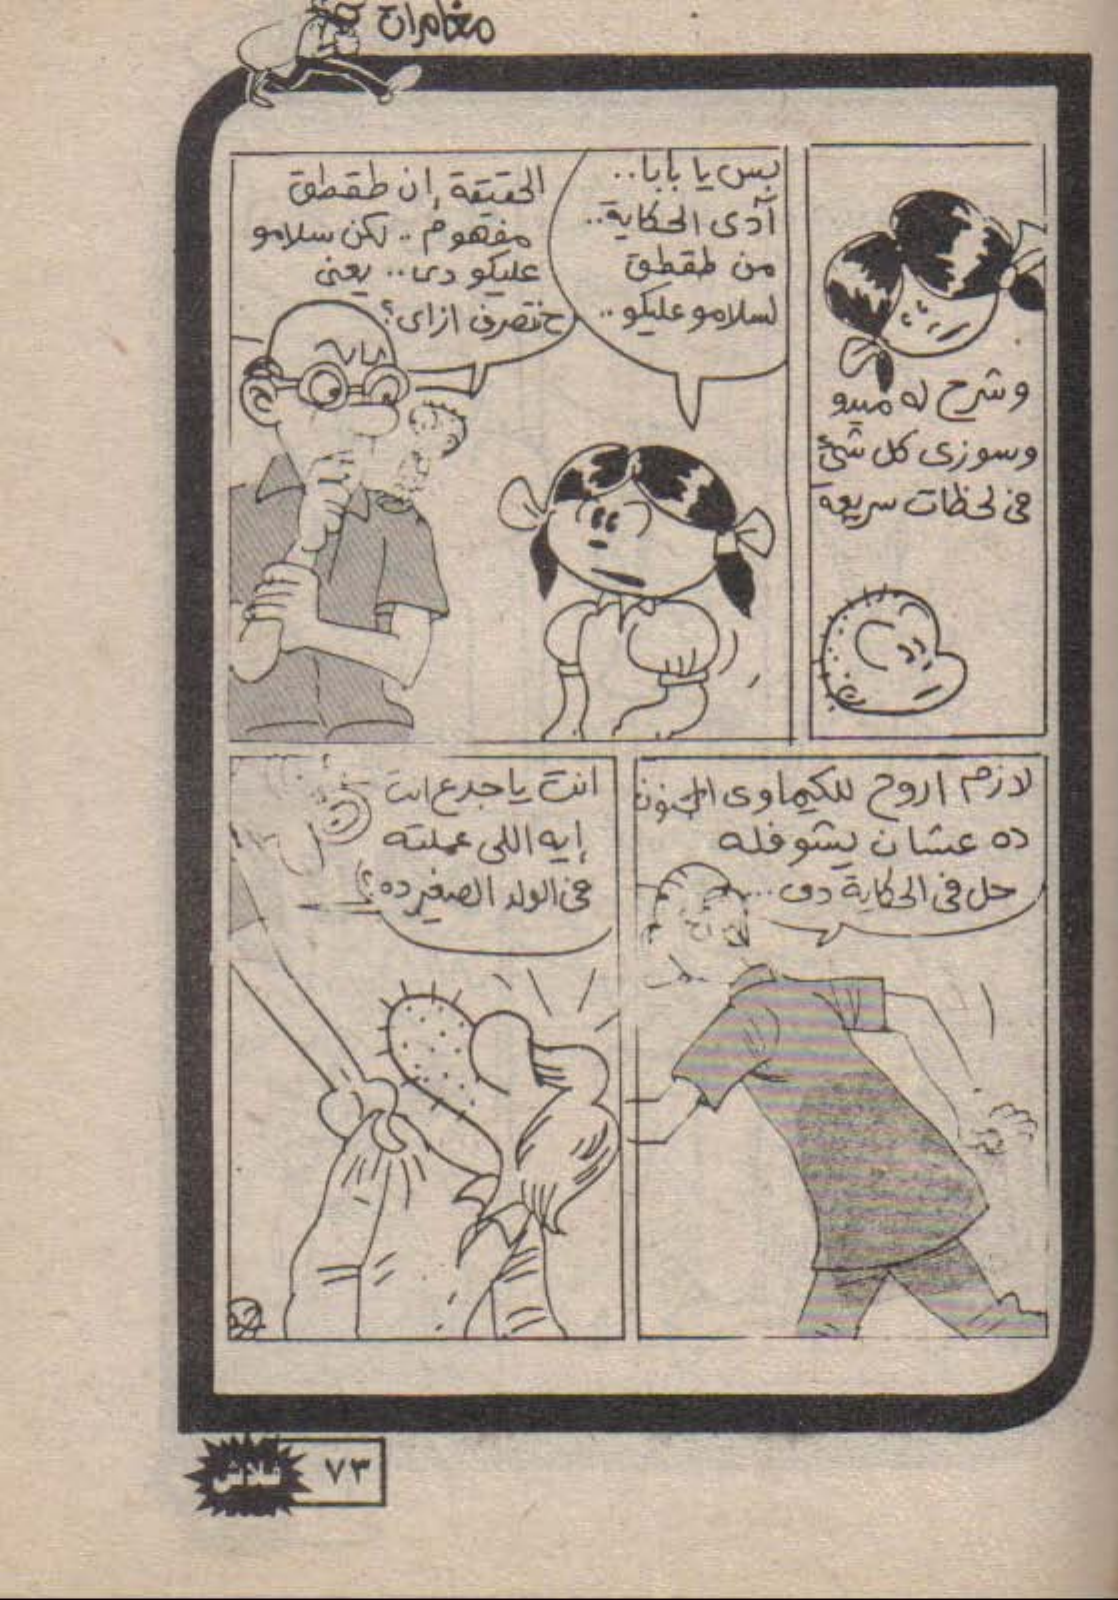 مغامرات
وشرح له ميدو
وسوزى كل شئ
فى لحظات سريعة
بس يا بابا..
آدى الحكاية..
من طقطق
لسلامو عليكو..
الحقيقة إن طقطق
مفهوم.. لكن سلامو
عليكو دى.. يعنى
حنتصرف ازاى؟
لازم اروح للكيماوى المجنون
ده عشان يشوفله
حل فى الحكاية دى...
انت ياجدع انت
إيه اللى عملته
فى الولد الصغير ده؟
فلاش
٧٣